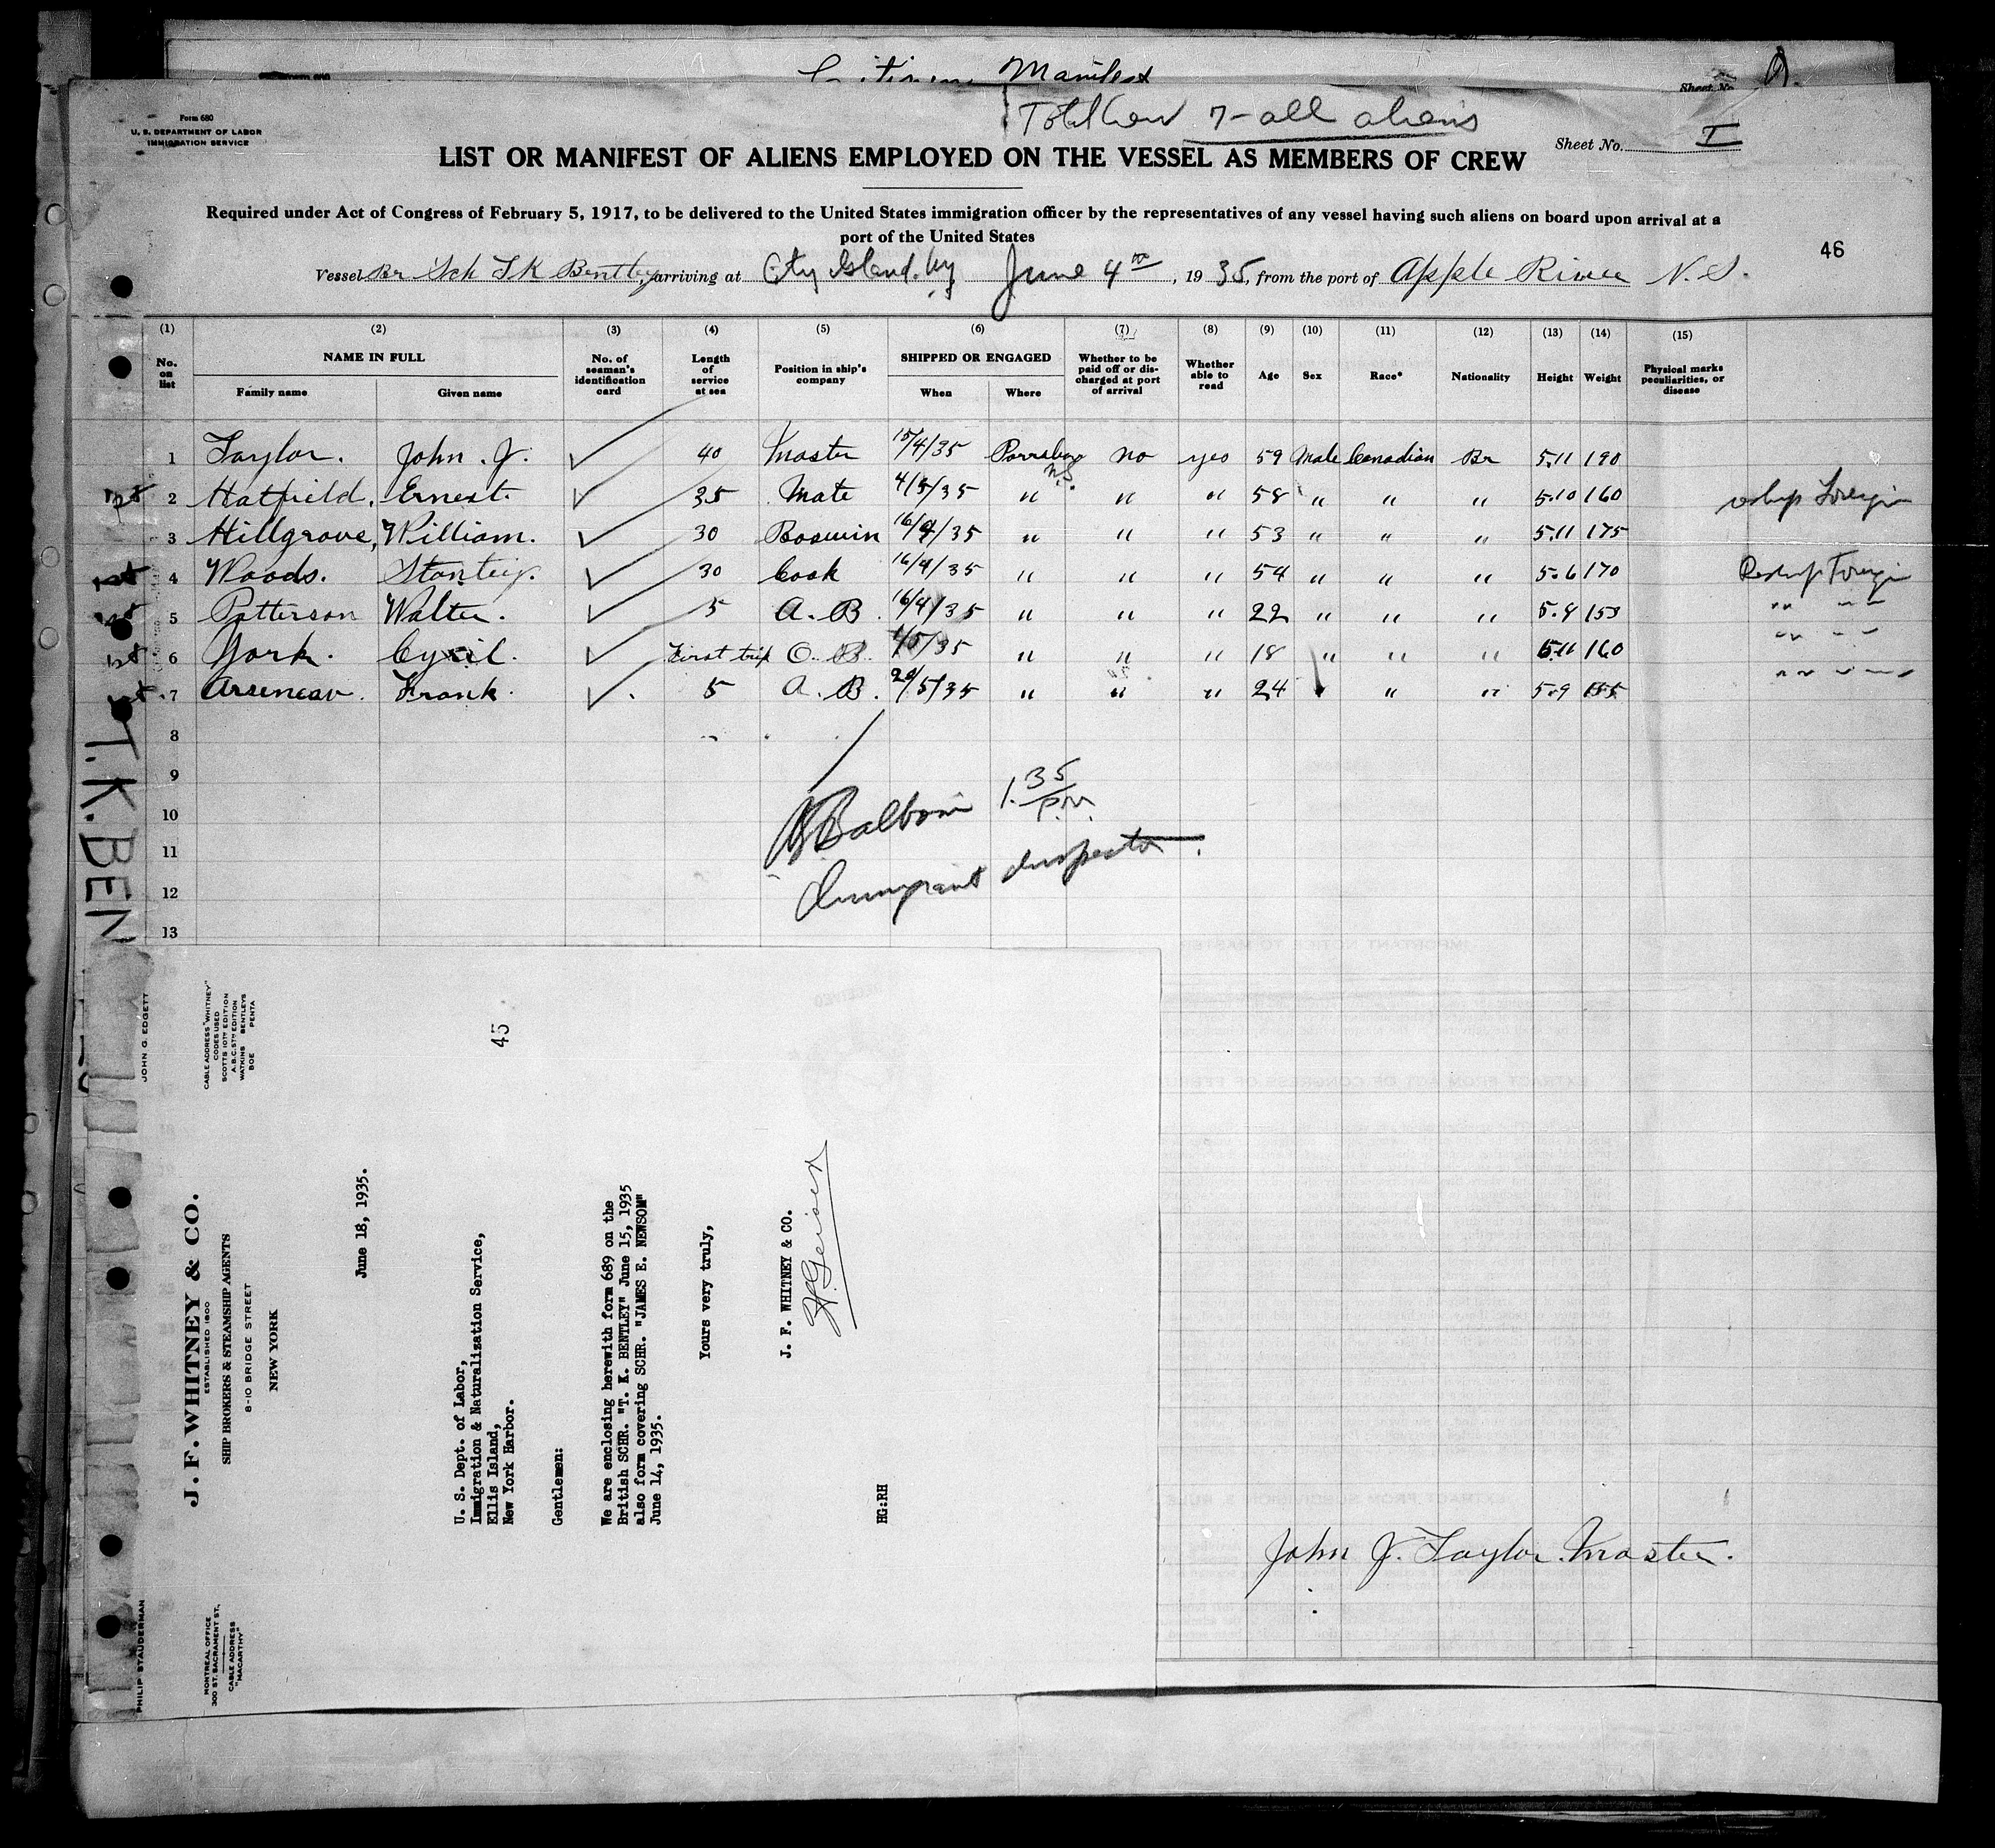 Manifest
Sheet No.
Form 680
U. S. DEPARTMENT OF LABOR
IMMIGRATION SERVICE
Total Crew 7 - all aliens
Sheet No. I
LIST OR MANIFEST OF ALIENS EMPLOYED ON THE VESSEL AS MEMBERS OF CREW
Required under Act of Congress of February 5, 1917, to be delivered to the United States immigration officer by the representatives of any vessel having such aliens on board upon arrival at a
port of the United States
46
Vessel Br Sch T K Bentley, arriving at City Island. NY June 4th, 1935, from the port of Apple River N. S.
(1) (2) (3) (4) (5) (6) (7) (8) (9) (10) (11) (12) (13) (14) (15)
No. on list NAME IN FULL Family name Given name No. of seaman's identification card Length of service at sea Position in ship's company SHIPPED OR ENGAGED When Where Whether to be paid off or discharged at port of arrival Whether able to read Age Sex Race* Nationality Height Weight Physical marks peculiarities, or disease
1 Taylor. John. J. ✓ 40 Master 15/4/35 Parrsboro N.S. No yes 59 Male Canadian Br 5.11 190
2 Hatfield, Ernest. ✓ 35 Mate 4/5/35 " " " 58 " " " 5.10 160 reship Foreign
3 Hillgrove, William. ✓ 30 Boswin 16/4/35 " " " 53 " " " 5.11 175
4 Woods. Stanley. ✓ 30 Cook 16/4/35 " " " 54 " " " 5.6 170 Reship Foreign
5 Patterson Walter. ✓ 5 A. B. 16/4/35 " " " 22 " " " 5.8 153 " "
6 York. Cyril. ✓ First trip O. B. /5/35 " " " 18 " " " 5.11 160 " "
7 Arseneau. Frank. ✓ 5 A. B. 20/5/35 " " " 24 " " " 5.9 155 " "
8
9
10
11
12
13
Balboni 1.35 P.M.
Immigrant Inspector.
T. K. BEN
JOHN G. EDGETT
PHILIP STAUDERMAN
CABLE ADDRESS "WHITNEY"
CODES USED
SCOTTS 10TH EDITION
A.B.C. 5TH EDITION
WATKINS BENTLEYS
BOE PENTA
J. F. WHITNEY & CO.
ESTABLISHED 1800
SHIP BROKERS & STEAMSHIP AGENTS
8-10 BRIDGE STREET
NEW YORK
MONTREAL OFFICE
300 ST. SACRAMENT ST.,
CABLE ADDRESS
"MACARTHY"
June 18, 1935.
45
U. S. Dept. of Labor,
Immigration & Naturalization Service,
Ellis Island,
New York Harbor.
Gentlemen:
We are enclosing herewith form 689 on the
British SCHR. "T. K. BENTLEY" June 15, 1935
also form covering SCHR. "JAMES E. NEWSOM"
June 14, 1935.
Yours very truly,
J. F. WHITNEY & CO.
HG:RH
John J. Taylor. Master.